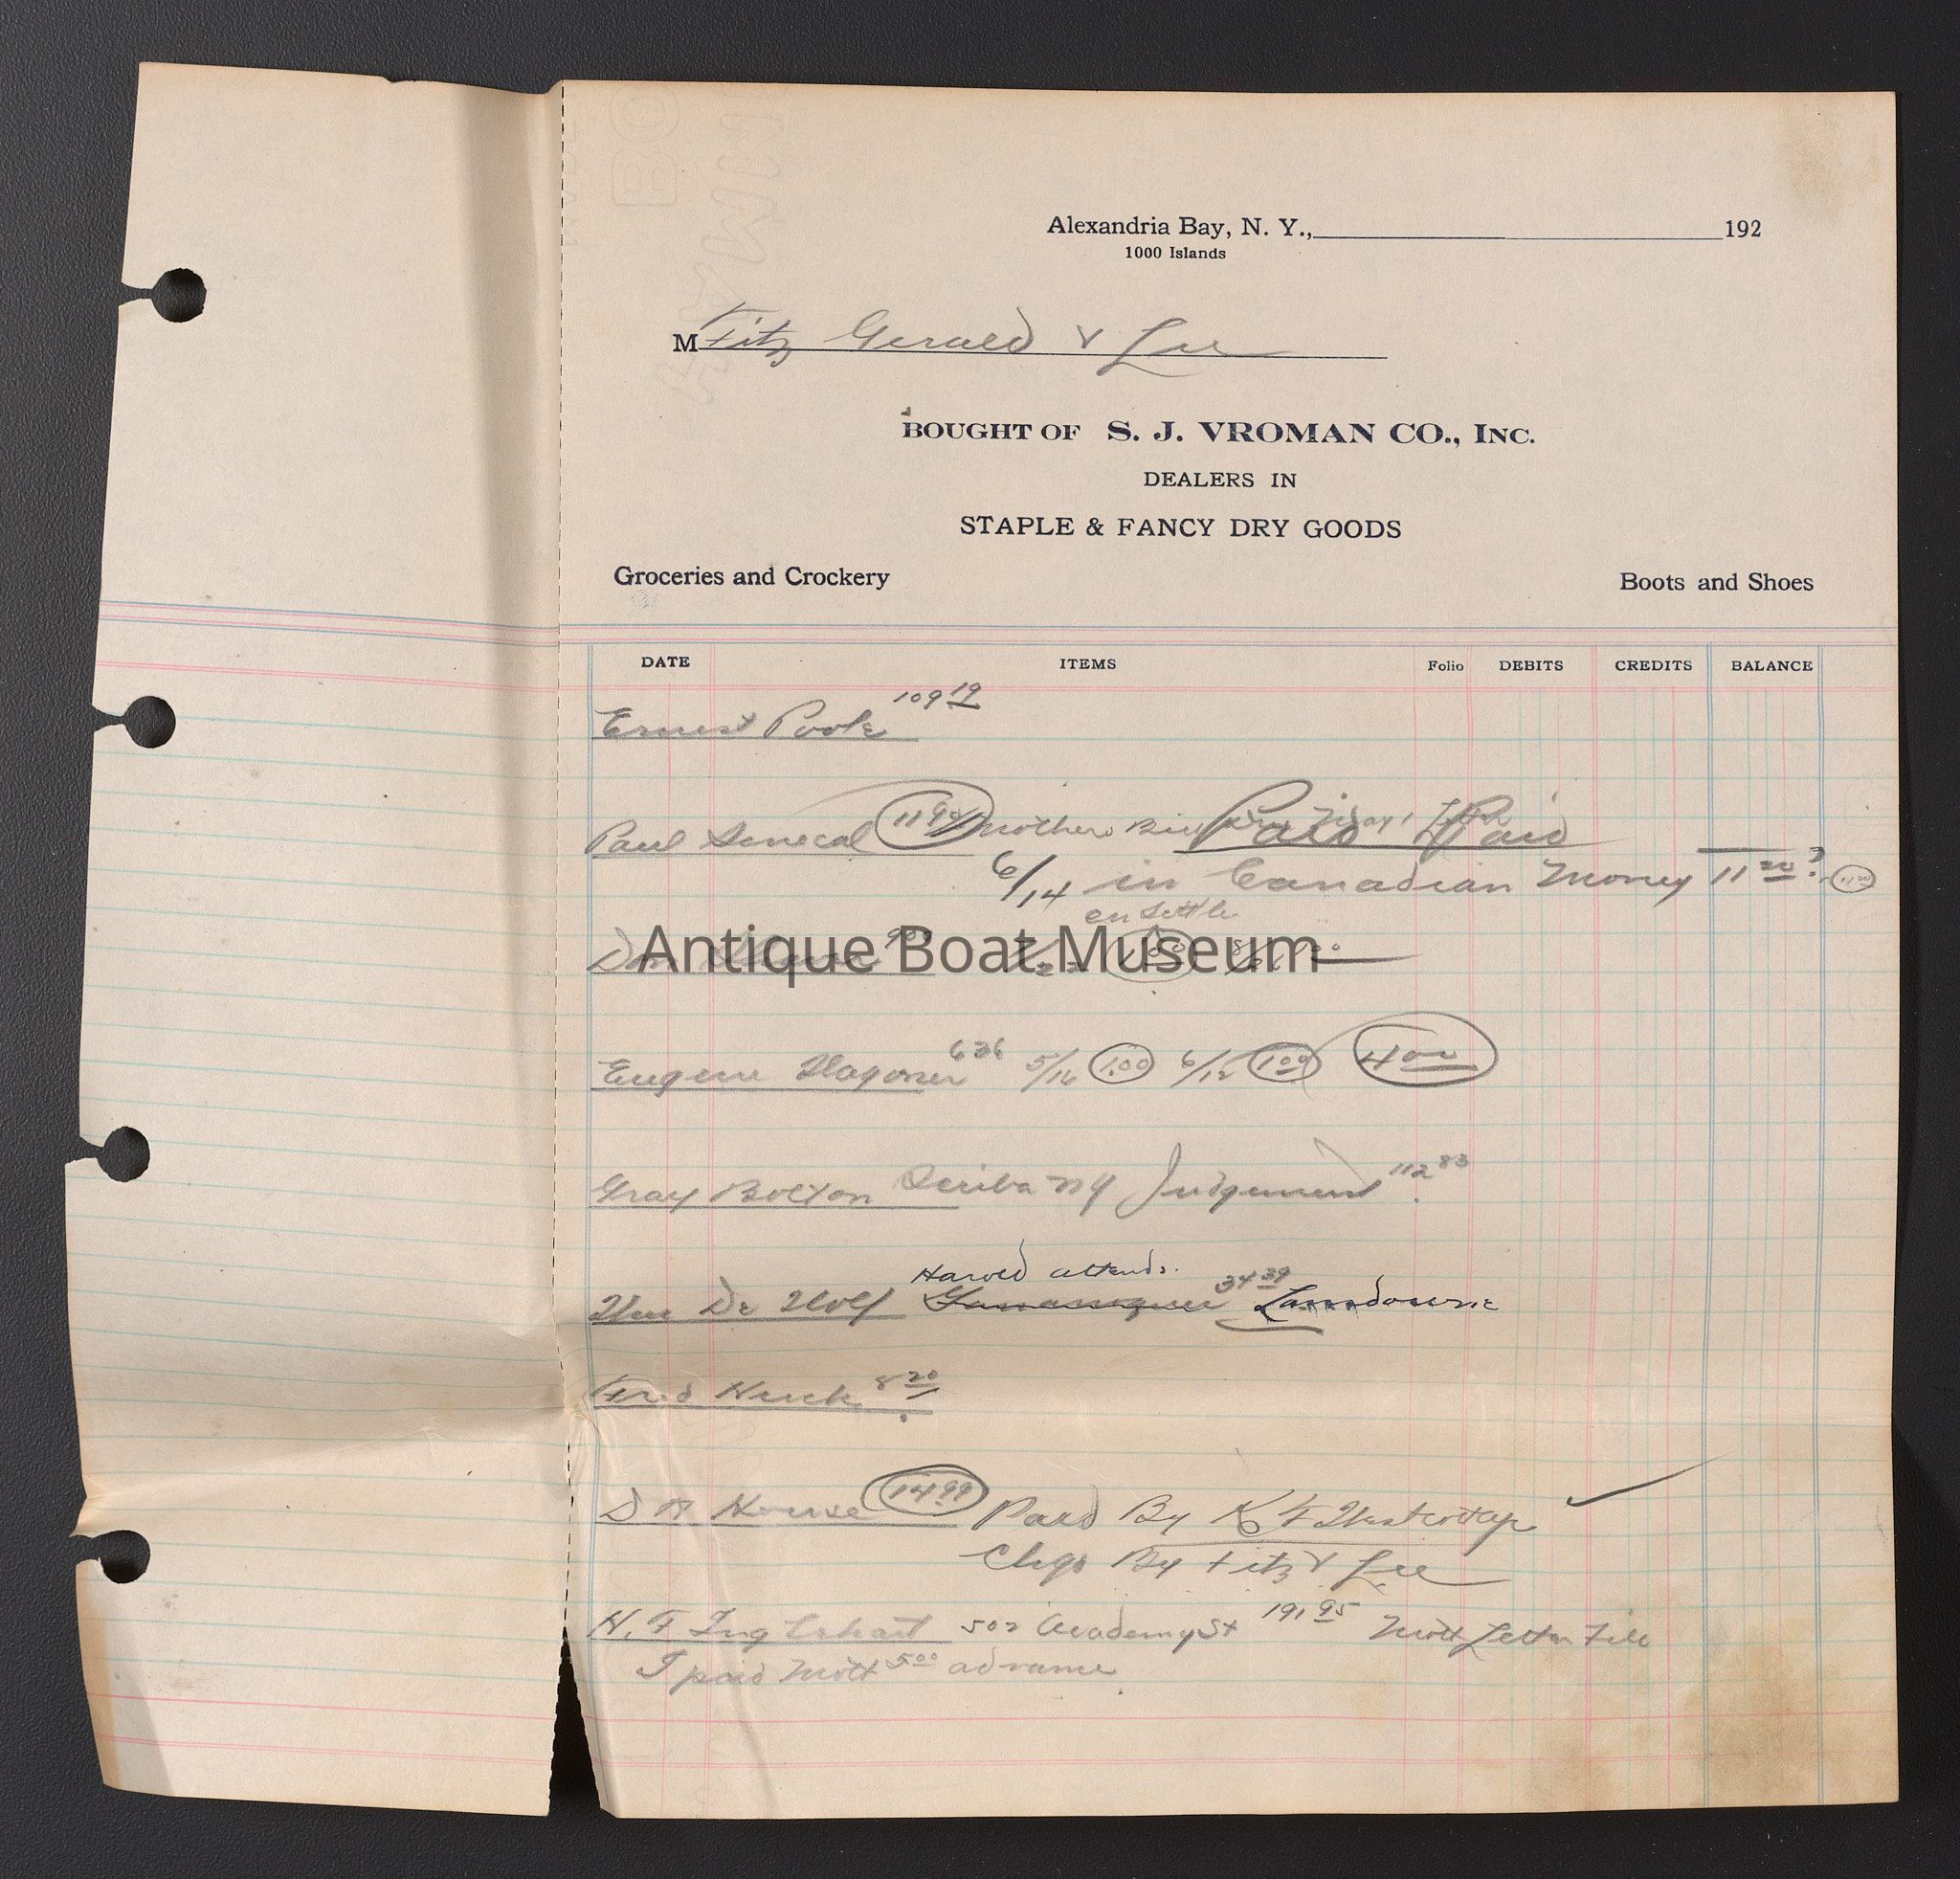 Alexandria Bay, N. Y., 192
1000 Islands
M Fitz Gerald & Lee
BOUGHT OF S. J. VROMAN CO., INC.
DEALERS IN
STAPLE & FANCY DRY GOODS
Groceries and Crockery Boots and Shoes
DATE ITEMS Folio DEBITS CREDITS BALANCE
Ernest Poole 109 19
Paul Senecal Mother Paid Paid
6/14 in Canadian Money 11 20?
on Settle
Antique Boat Museum
Eugene Wagoner 6 26 5/16 1.00 6/12 1 00 4 00
Gray Bolton Scriba NY Judgement 112 83
Harold attends.
Wm De Wolf Gananoque 34 39 Lansdowne
Fred Huck 8 20
D A House 14 99 Paid By K F
Chgs By Fitz & Lee
H. F. Inglehart 502 Academy St 191 95 Mott Letter File
I paid Mott 5 00 advance